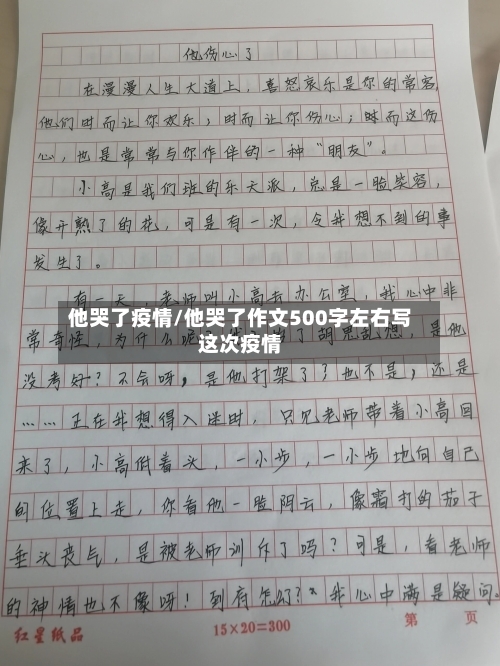 他伤心了
在漫漫人生大道上，喜怒哀乐是你的常客，
他们时而让你欢乐；时而让你伤心；时而这伤
心，也是常常与你作伴的一种“朋友”。
小高是我们班的乐天派，总是一脸笑容，
像开熟了的花，可是有一次，令我想不到的事
发生了。
有一天，老师叫小高去办公室，我心中非
他哭了疫情/他哭了作文500字左右写
常奇怪，为什么呢？了胡思乱想，是他
这次疫情
没考好？不会呀，是他打架了？也不是，还是
……正在我想得入迷时，只见老师带着小高回
来了，小高低着头，一小步，一小步地向自己
的位置上走，你看他一脸阴云，像霜打的茄子
垂头丧气，是被老师训斥了吗？可是，看老师
的神情也不像呀！到底怎么了？我心中满是疑问。
红星纸品
15×20=300
第 页